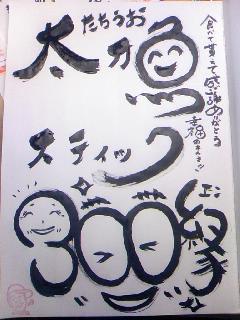 たちうお
太刀魚
スティック
300縁
えん
食べて貰えて感謝ありがとう
幸福の